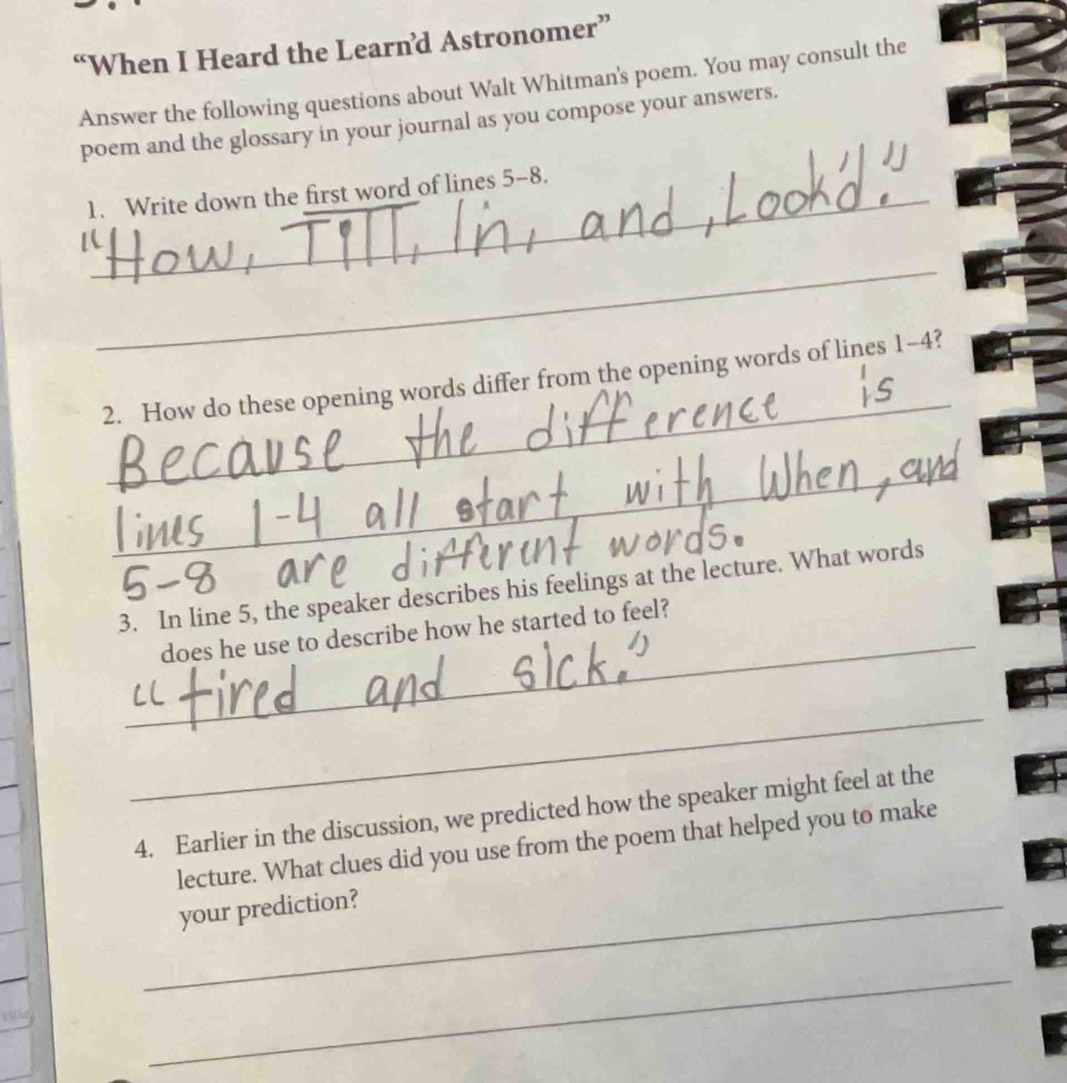 “When I Heard the Learn’d Astronomer”
Answer the following questions about Walt Whitman’s poem. You may consult the
poem and the glossary in your journal as you compose your answers.
1. Write down the first word of lines 5–8.
"How, Till, In, and, Look'd."
2. How do these opening words differ from the opening words of lines 1–4?
Because the difference is
lines 1-4 all start with When, and
5-8 are different words.
3. In line 5, the speaker describes his feelings at the lecture. What words
does he use to describe how he started to feel?
"tired and sick."
4. Earlier in the discussion, we predicted how the speaker might feel at the
lecture. What clues did you use from the poem that helped you to make
your prediction?